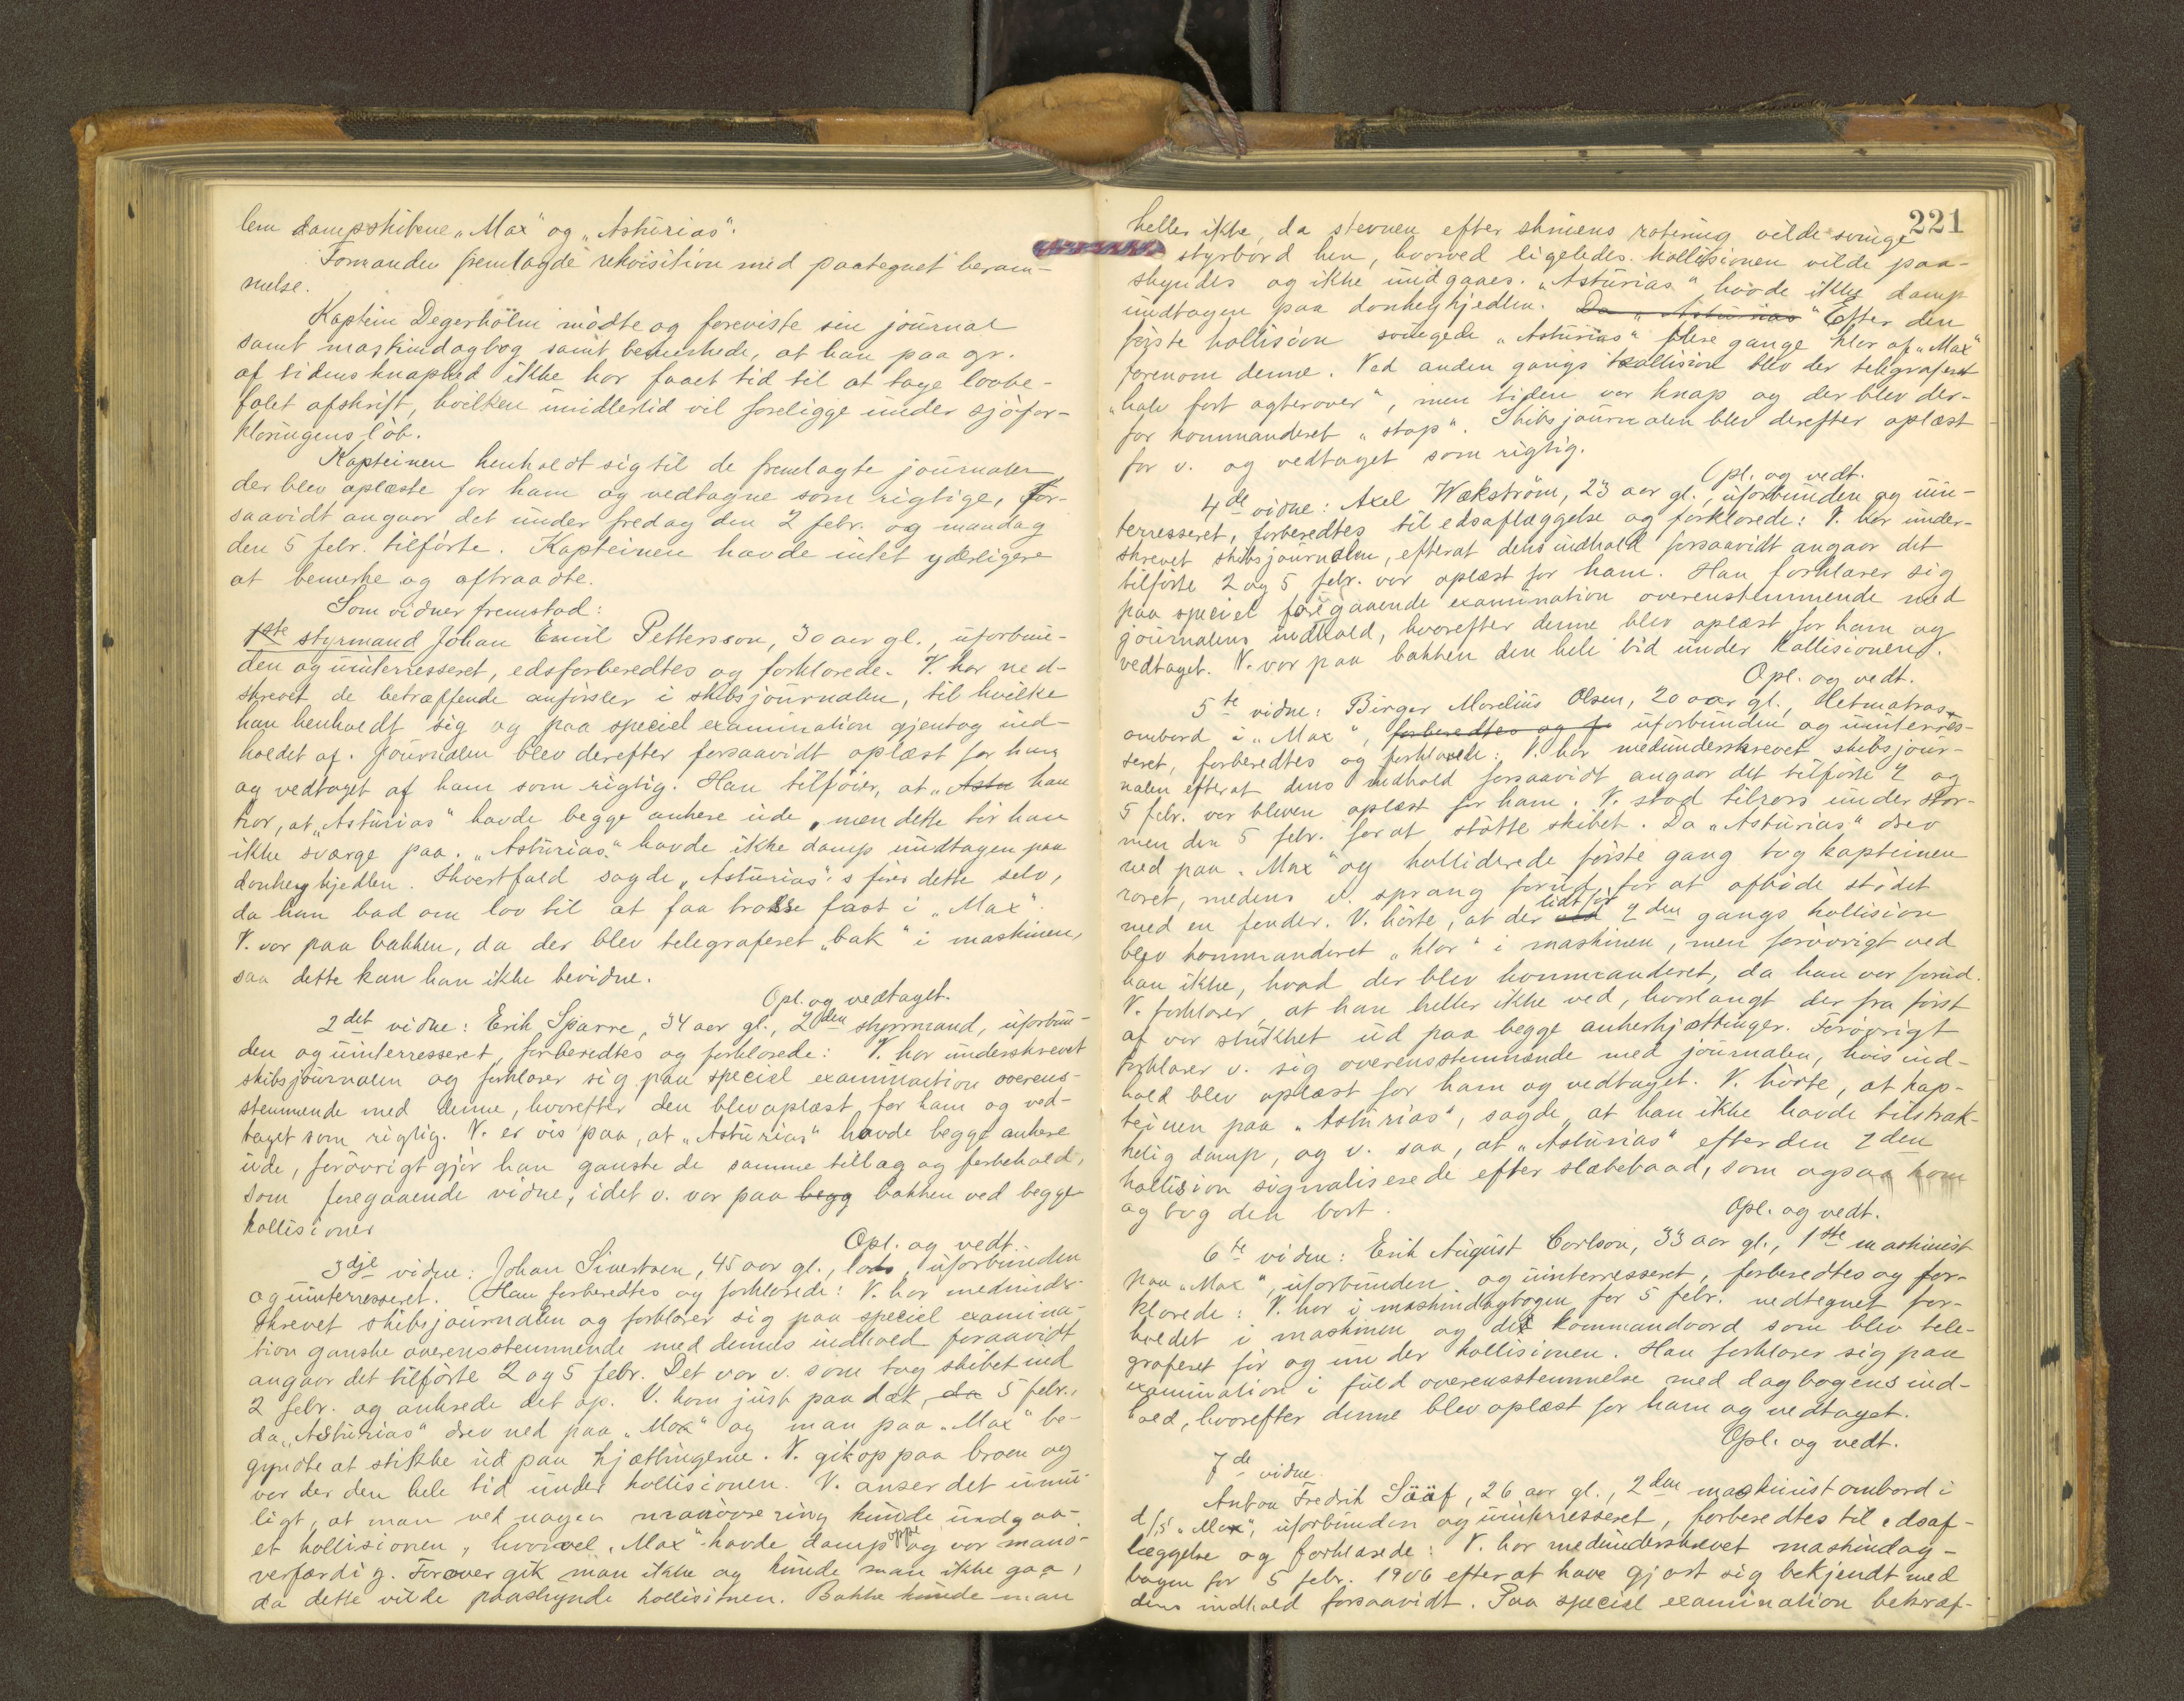 lem dampskibene „Max" og „Asturias".
Formanden fremlagde rekvisition med paategnet beram-
melse.
Kaptein Degerholm mødte og foreviste sin journal
samt maskindagbog samt bemerkede, at han paa gr.
af tidens knaphed ikke har faaet tid til at tage lovbe-
falet afskrift, hvilken imidlertid vil foreligge under sjøfor-
klaringens løb.
Kapteinen henholdt sig til de fremlagte journaler
der blev oplæste for ham og vedtagne som rigtige, for-
saavidt angaar det under fredag den 2 febr. og mandag
den 5 febr. tilførte. Kapteinen havde intet yderligere
at bemerke og aftraadte.
Som vidner fremstod:
1ste styrmand Johan Emil Pettersson, 30 aar gl., uforbun-
den og uinterresseret, edsforberedtes og forklarede. V. har ned-
skrevet de betræffende anførsler i skibsjournalen, til hvilke
han henholdt sig og paa speciel examination gjentog ind-
holdet af. Journalen blev derefter forsaavidt oplæst for ham
og vedtaget af ham som rigtig. Han tilføier, at „Astu han
tror, at „Asturias" havde begge ankere ude, men dette tør han
ikke sværge paa. „Asturias" havde ikke damp undtagen paa
donkeykjedlen. Ihvertfald sagde „Asturias"'s fører dette selv,
da han bad om lov til at faa trosse fast i „Max".
V. var paa bakken, da der blev telegraferet „bak" i maskinen,
saa dette kan han ikke bevidne.
Opl. og vedtaget.
2det vidne: Erik Sparre, 34 aar gl., 2den styrmand, uforbun-
den og uinterresseret, forberedtes og forklarede: V. har underskrevet
skibsjournalen og forklarer sig paa speciel examination overens-
stemmende med denne, hvorefter den blev oplæst for ham og ved-
taget som rigtig. V. er vis paa, at „Asturias" havde begge ankere
ude, forøvrigt gjør han ganske de samme tillæg og forbehold,
som foregaaende vidne, idet v. var paa begg bakken ved begge
kollisioner
Opl. og vedt.
3dje vidne: Johan Sivertsen, 45 aar gl., lods, uforbunden
og uinterresseret. Han forberedtes og forklarede: V. har medunder-
skrevet skibsjournalen og forklarer sig paa speciel examina-
tion ganske overensstemmende med dennes indhold forsaavidt
angaar det tilførte 2 og 5 febr. Det var v. som tog skibet ind
2 febr. og ankrede det op. V. kom just paa dæk, da 5 febr.,
da „Asturias" drev ned paa „Max" og man paa „Max" be-
gyndte at stikke ud paa kjættingerne. V. gik op paa broen og
var der den hele tid under kollisionen. V. anser det umu-
ligt, at man ved nogen manøvrering kunde undgaa-
et kollisionen, hvorvel „Max" havde damp oppe og var manø-
verfærdig. Forover gik man ikke og kunde man ikke gaa,
da dette vilde paaskynde kollisionen. Bakke kunde man
221
heller ikke, da stevnen efter skruens rotering vilde svinge
styrbord hen, hvorved ligeledes kollisionen vilde paa-
skyndes og ikke undgaaes. „Asturias" havde ikke damp
undtagen paa donkeykjedlen. Da „Asturias" Efter den
første kollision svingede „Asturias" flere gange klar af „Max"
forenom denne. Ved anden gangs kollision blev der telegraferet
„halv fart agterover", men tiden var knap og der blev der-
for kommanderet „stop". Skibsjournalen blev derefter oplæst
for v. og vedtaget som rigtig.
Opl. og vedt.
4de vidne: Axel Wækström, 23 aar gl., uforbunden og uin-
terresseret, forberedtes til edsaflæggelse og forklarede: V. har under-
skrevet skibsjournalen, efterat dens indhold forsaavidt angaar det
tilførte 2 og 5 febr. var oplæst for ham. Han forklarer sig
paa speciel foregaaende examination overenstemmende med
journalens indhold, hvorefter denne blev oplæst for ham og
vedtaget. V. var paa bakken den hele tid under kollisionen.
Opl. og vedt.
5te vidne: Birger Mordius Olsen, 20 aar gl., letmatros
ombord i „Max", forberedtes og f uforbunden og uinterres-
seret, forberedtes og forklarede: V. har medunderskrevet skibsjour-
nalen efterat dens indhold forsaavidt angaar det tilførte 2 og
5 febr. var bleven oplæst for ham. V. stod tilrors under stor-
men den 5 febr. for at støtte skibet. Da „Asturias" drev
ned paa „Max" og kolliderede første gang tog kapteinen
roret, medens v. sprang forud, for at afbøde stødet
med en fender. V. hørte, at der ved lidt før 2den gangs kollision
blev kommanderet „klar" i maskinen, men forøvrigt ved
han ikke, hvad der blev kommanderet, da han var forud.
V. forklarer, at han heller ikke ved, hvorlangt der fra først
af var stukket ud paa begge ankerkjættinger. Forøvrigt
forklarer v. sig overensstemmende med journalen, hvis ind-
hold blev oplæst for ham og vedtaget. V. hørte, at kap-
teinen paa „Asturias", sagde, at han ikke havde tilstræk-
kelig damp, og v. saa, at „Asturias" efter den 2den
kollision signaliserede efter slæbebaad, som ogsaa kom
og tog den bort.
Opl. og vedt.
6te vidne: Erik August Carlson, 33 aar gl., 1ste maskinist
paa „Max", uforbunden og uinterresseret, forberedtes og for-
klarede: V. har i maskindagbogen for 5 febr. nedtegnet for-
holdet i maskinen og de kommandoord som blev tele-
graferet før og under kollisionen. Han forklarer sig paa
examination i fuld overensstemmelse med dagbogens ind-
hold, hvorefter denne blev oplæst for ham og vedtaget.
Opl. og vedt.
7de vidne.
Anton Fredrik Sääf, 26 aar gl., 2den maskinist ombord i
d/s „Max", uforbunden og uinterresseret, forberedtes til edsaf-
læggelse og forklarede: V. har medunderskrevet maskindag-
bogen for 5 febr. 1906 efter at have gjort sig bekjendt med
dens indhold forsaavidt. Paa speciel examination bekræf-